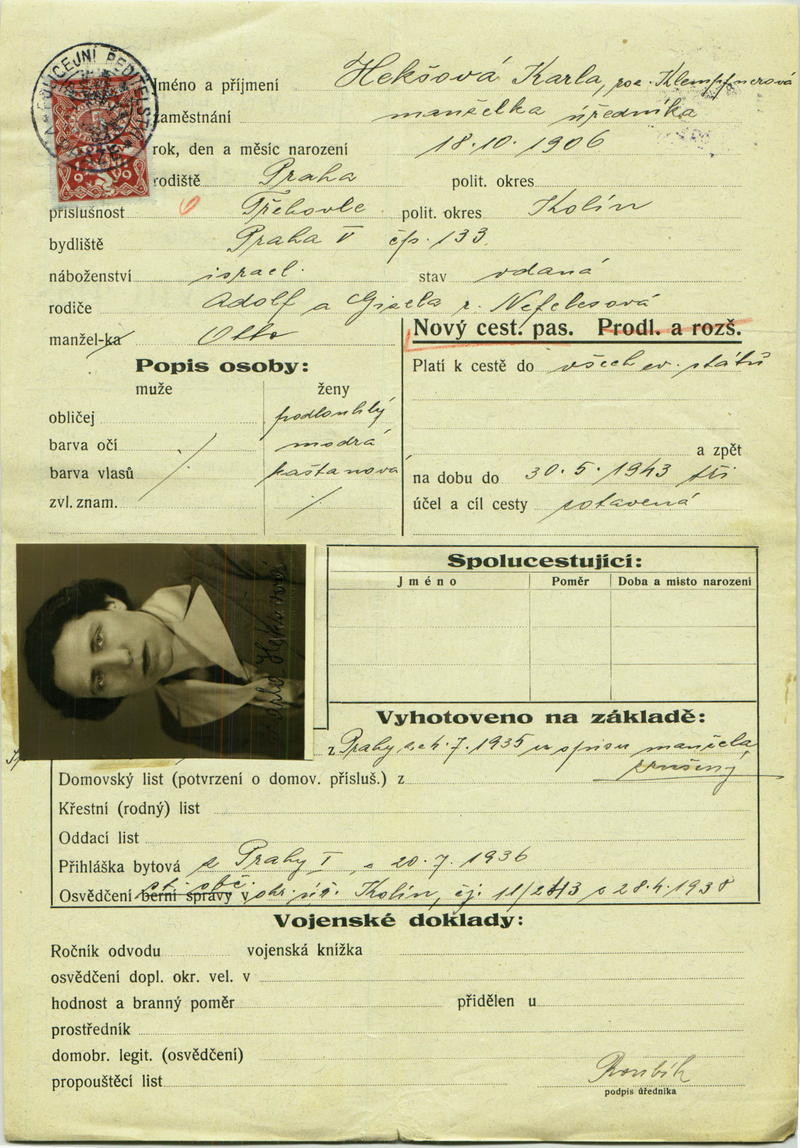 POLICEJNÍ ŘEDITELSTVÍ
Jméno a příjmení Hekšová Karla, roz. Klempfnerová
zaměstnání manželka úředníka
rok, den a měsíc narození 18.10.1906
rodiště Praha polit. okres
příslušnost Třebovle polit. okres Kolín
bydliště Praha V čp. 133.
náboženství israel. stav vdaná
rodiče Adolf a Gisela r. Nefelesová
manžel-ka Otto
Nový cest. pas. Prodl. a rozš.
Popis osoby:
muže ženy
obličej podlouhlý
barva očí modrá
barva vlasů kaštanová
zvl. znam.
Platí k cestě do všech ev. států
a zpět
na dobu do 30.5.1943 tři
účel a cíl cesty zotavená
Karla Hekšová
Spolucestující:
Jméno Poměr Doba a místo narození
Vyhotoveno na základě:
z Prahy z 4.7.1935 ve spisu manžela
Domovský list (potvrzení o domov. přísluš.) z
Křestní (rodný) list
Oddací list
Přihláška bytová z Prahy I, z 20.7.1936
Osvědčení berní správy v st. obč. okr. úř. Kolín, čj. 11/243 z 28.4.1938
Vojenské doklady:
Ročník odvodu vojenská knížka
osvědčení dopl. okr. vel. v
hodnost a branný poměr přidělen u
prostředník
domobr. legit. (osvědčení)
propouštěcí list
Roubík
podpis úředníka